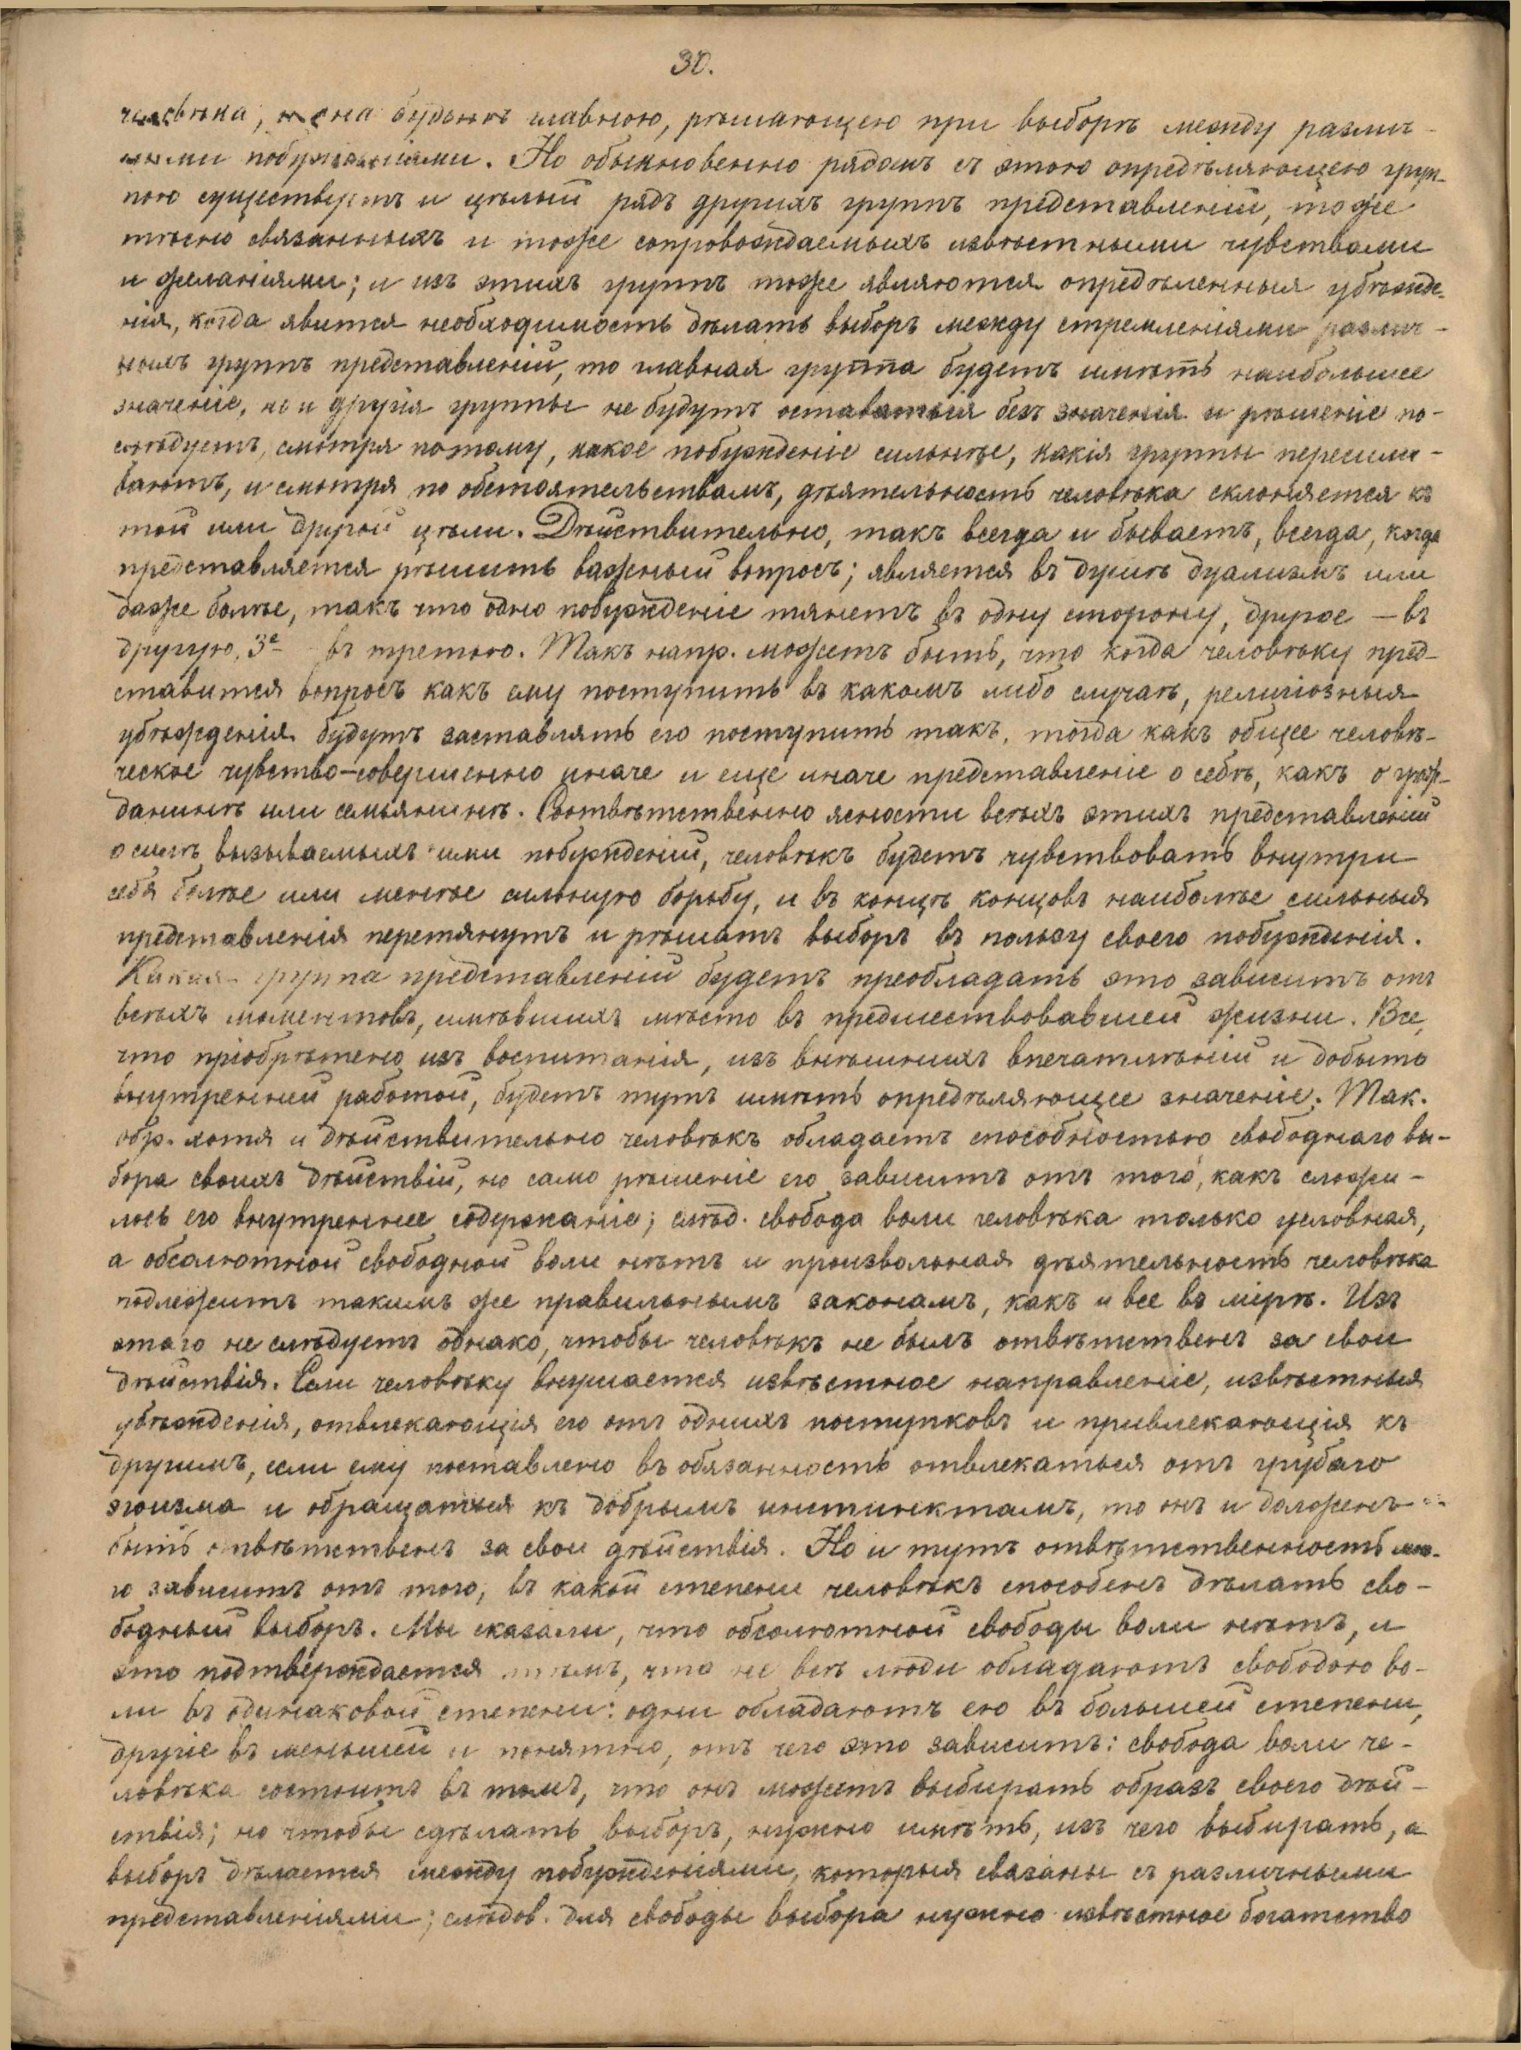 30.
человѣка, и она будетъ главною, рѣшающею при выборѣ между различ-
ными побужденіями. Но обыкновенно рядомъ съ этою опредѣляющею груп-
пою существуетъ и цѣлый рядъ другихъ группъ представленій, тоже
тѣсно связанныхъ и тоже сопровождаемыхъ извѣстными чувствами
и желаніями; и изъ этихъ группъ тоже являются опредѣленныя убѣжде-
нія, когда явится необходимость дѣлать выборъ между стремленіями различ-
ныхъ группъ представленій, то главная группа будетъ имѣть наибольшее
значеніе, но и другія группы не будутъ оставаться безъ значенія и рѣшеніе по-
слѣдуетъ, смотря потому, какое побужденіе сильнѣе, какія группы пересили-
ваютъ, и смотря по обстоятельствамъ, дѣятельность человѣка склоняется къ
той или другой цѣли. Дѣйствительно, такъ всегда и бываетъ, всегда, когда
представляется рѣшить важный вопросъ; является въ душѣ дуализмъ или
даже болѣе, такъ что одно побужденіе тянетъ въ одну сторону, другое — въ
другую, 3е – въ третью. Такъ напр. можетъ быть, что когда человѣку пред-
ставится вопросъ какъ ему поступить въ какомъ либо случаѣ, религіозныя
убѣжденія будутъ заставлять его поступить такъ, тогда какъ общее человѣ-
ческое чувство – совершенно иначе и еще иначе представленіе о себѣ, какъ о граж-
данинѣ или семьянинѣ. Соотвѣтственно ясности всѣхъ этихъ представленій
о силѣ вызываемыхъ ими побужденій, человѣкъ будетъ чувствовать внутри
себя болѣе или менѣе сильную борьбу, и въ концѣ концовъ наиболѣе сильныя
представленія перетянутъ и рѣшатъ выборъ въ пользу своего побужденія.
Какая группа представленій будетъ преобладать это зависитъ отъ
всѣхъ моментовъ, имѣвшихъ мѣсто въ предшествовавшей жизни. Все,
что пріобрѣтено изъ воспитанія, изъ внѣшнихъ впечатлѣній и добыто
внутренней работой, будетъ тутъ имѣть опредѣляющее значеніе. Так.
обр. хотя и дѣйствительно человѣкъ обладаетъ способностью свободнаго вы-
бора своихъ дѣйствій, но само рѣшеніе его зависитъ отъ того, какъ сложи-
лось его внутреннее содержаніе; слѣд. свобода воли человѣка только условная,
а обсалютной свободной воли нѣтъ и произвольная дѣятельность человѣка
подлежитъ такимъ же правильнымъ законамъ, какъ и все въ мірѣ. Изъ
этаго не слѣдуетъ однако, чтобы человѣкъ не былъ отвѣтственъ за свои
дѣйствія. Если человѣку внушается извѣстное направленіе, извѣстныя
убѣжденія, отвлекающія его отъ однихъ поступковъ и привлекающія къ
другимъ, если ему поставлено въ обязанность отвлекаться отъ грубаго
эгоизма и обращаться къ добрымъ инстинктамъ, то онъ и долженъ
быть отвѣтственъ за свои дѣйствія. Но и тутъ отвѣтственность мно-
го зависитъ отъ того, въ какой степени человѣкъ способенъ дѣлать сво-
бодный выборъ. Мы сказали, что обсалютной свободы воли нѣтъ, и
это подтверждается тѣмъ, что не всѣ люди обладаютъ свободою во-
ли въ одинаковой степени: одни обладаютъ ею въ большей степени,
другіе въ меньшей и понятно, отъ чего это зависитъ: свобода воли че-
ловѣка состоитъ въ томъ, что онъ можетъ выбирать образъ своего дѣй-
ствія; но чтобы сдѣлать выборъ, нужно имѣть, изъ чего выбирать, а
выборъ дѣлается между побужденіями, которыя связаны съ различными
представленіями; слѣдов. для свободы выбора нужно извѣстное богатство